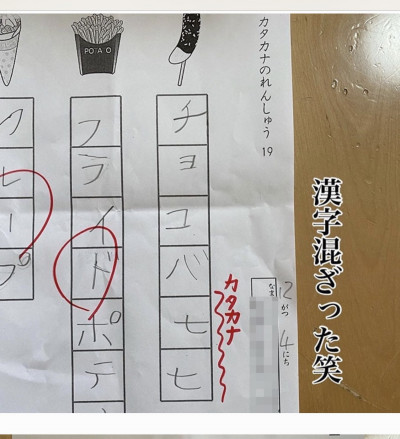 漢字混ざった笑
カタカナのれんしゅう 19
12がつ 4にち
なまえ
カタカナ
チョコバ七七
POTATO
フライドポテ
クレープ